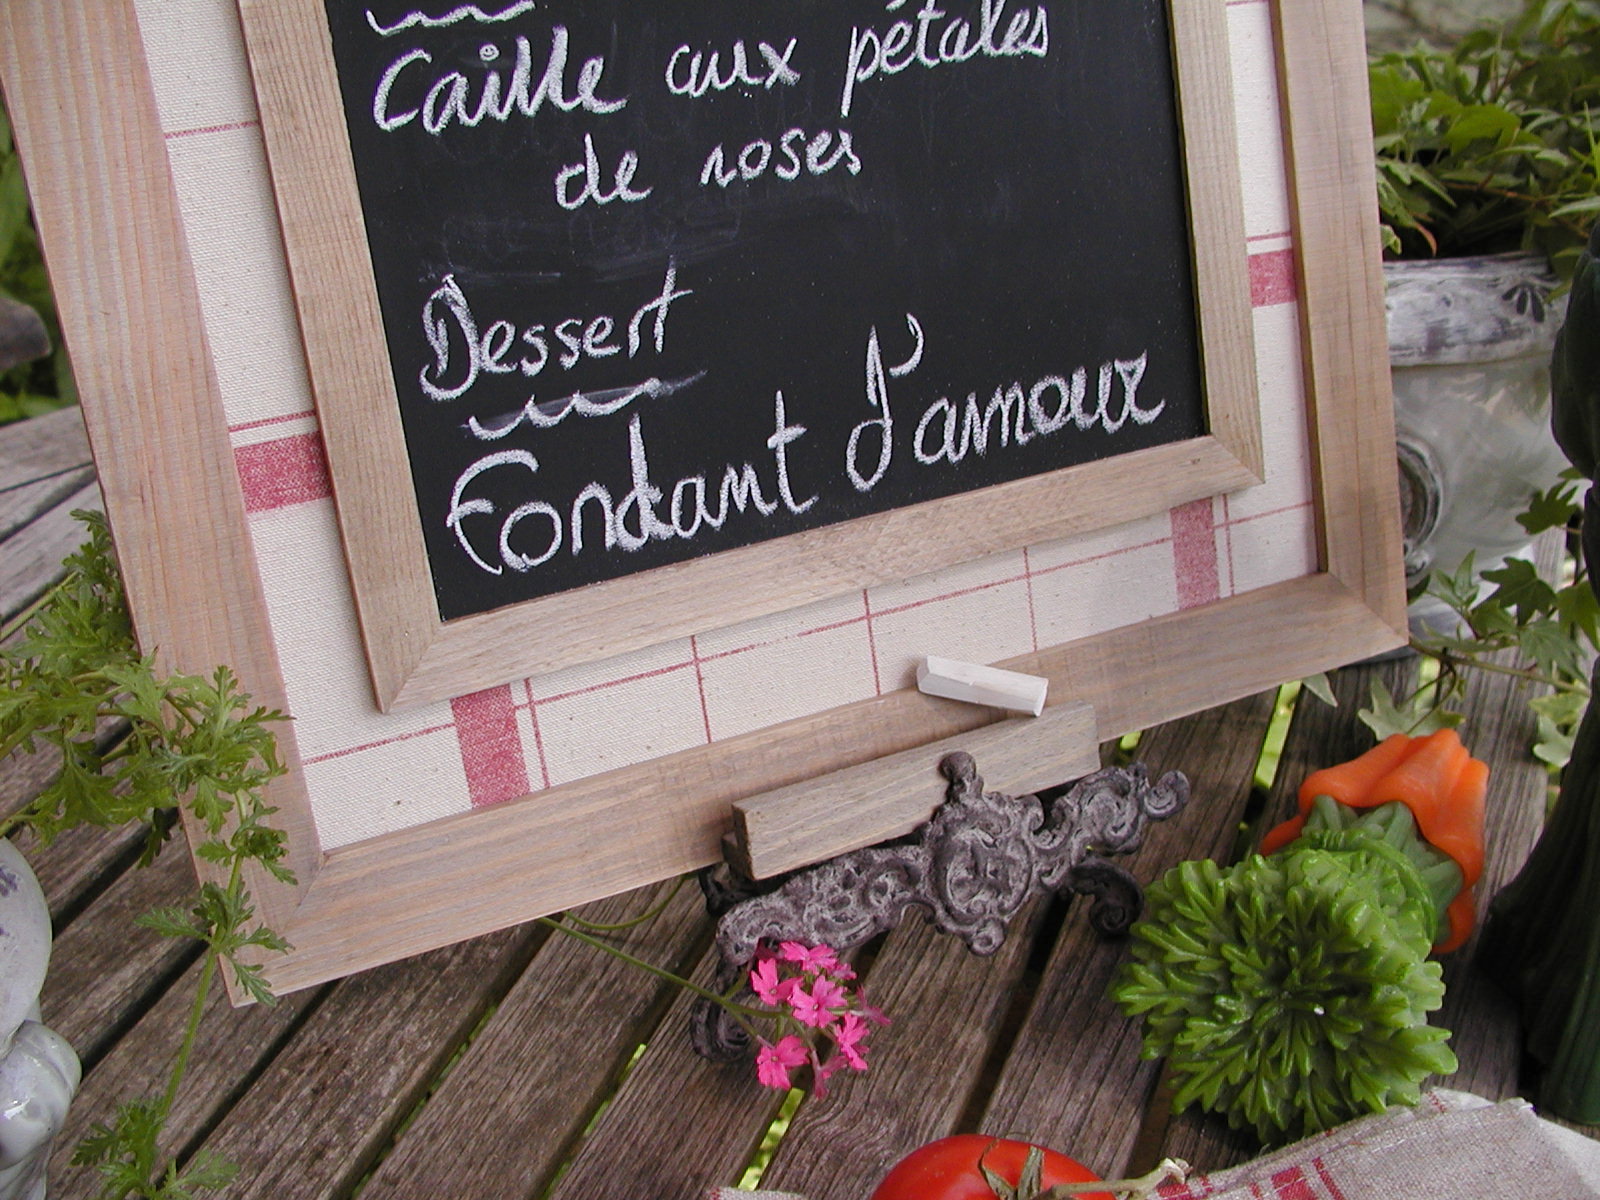 Caille aux pétales
de roses
Dessert
Fondant d'amour